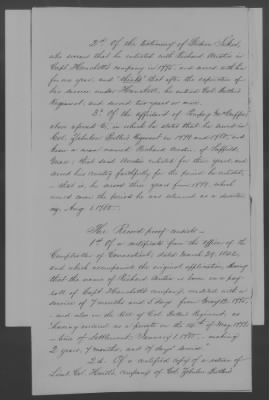 2d. Of the testimony of
who swears that he enlisted with Richard Austin in
Capt Hanchett's company in 1775, and served with him
for one year, and thinks that after the expiration of
his service under Hanchett, he entered Col. Butler's
Regiment, and served two years or more.
3d. Of the affidavit of Pompey
above referred to, in which he states that he served in
Col. Zebulon Butler's Regiment in 1779 and 1780, and
knew a man named Richard Austin, of Suffield,
that said Austin enlisted for three years, and
served his country faithfully for the period he enlisted,
- that is, he served three years from 1777, which
would cover the period he was claimed as a deserter
Aug. 1, 1780.
The Record proof consists -
1st Of a certificate from the office of the
Comptroller of Connecticut, dated March 29, 1842,
and which accompanied the original application, showing
that the name of Richard Austin is borne on a pay
roll of Capt Hanchett's company, credited with a
service of 7 months and 5 days from May 1775,
- and also on the Roll of Col. Butler's Regiment, as
having enlisted as a private on the 14th of May, 1777,
- time of Settlement, January 1, 1780, - making
2 years, 7 months, and 17 days' service.
2d. Of a certified copy of a return of
Lieut Col. company of Col. Zebulon Butler's